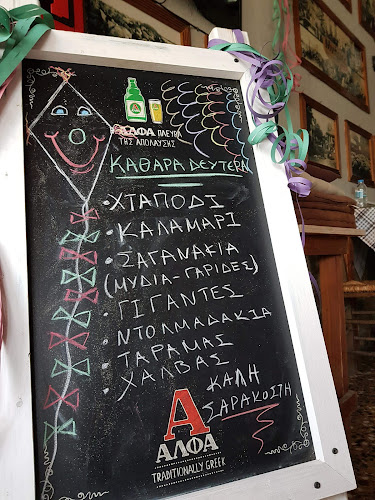 ΑΛΦΑ ΠΛΕΥΡΑ
ΤΗΣ ΑΠΟΛΑΥΣΗΣ
ΚΑΘΑΡΑ ΔΕΥΤΕΡΑ
· ΧΤΑΠΟΔΙ
· ΚΑΛΑΜΑΡΙ
· ΣΑΓΑΝΑΚΙΑ
(ΜΥΔΙΑ-ΓΑΡΙΔΕΣ)
· ΓΙΓΑΝΤΕΣ
· ΝΤΟΛΜΑΔΑΚΙΑ
· ΤΑΡΑΜΑΣ
· ΧΑΛΒΑΣ
ΚΑΛΗ
ΣΑΡΑΚΟΣΤΗ
Α
ΑΛΦΑ
TRADITIONALLY GREEK